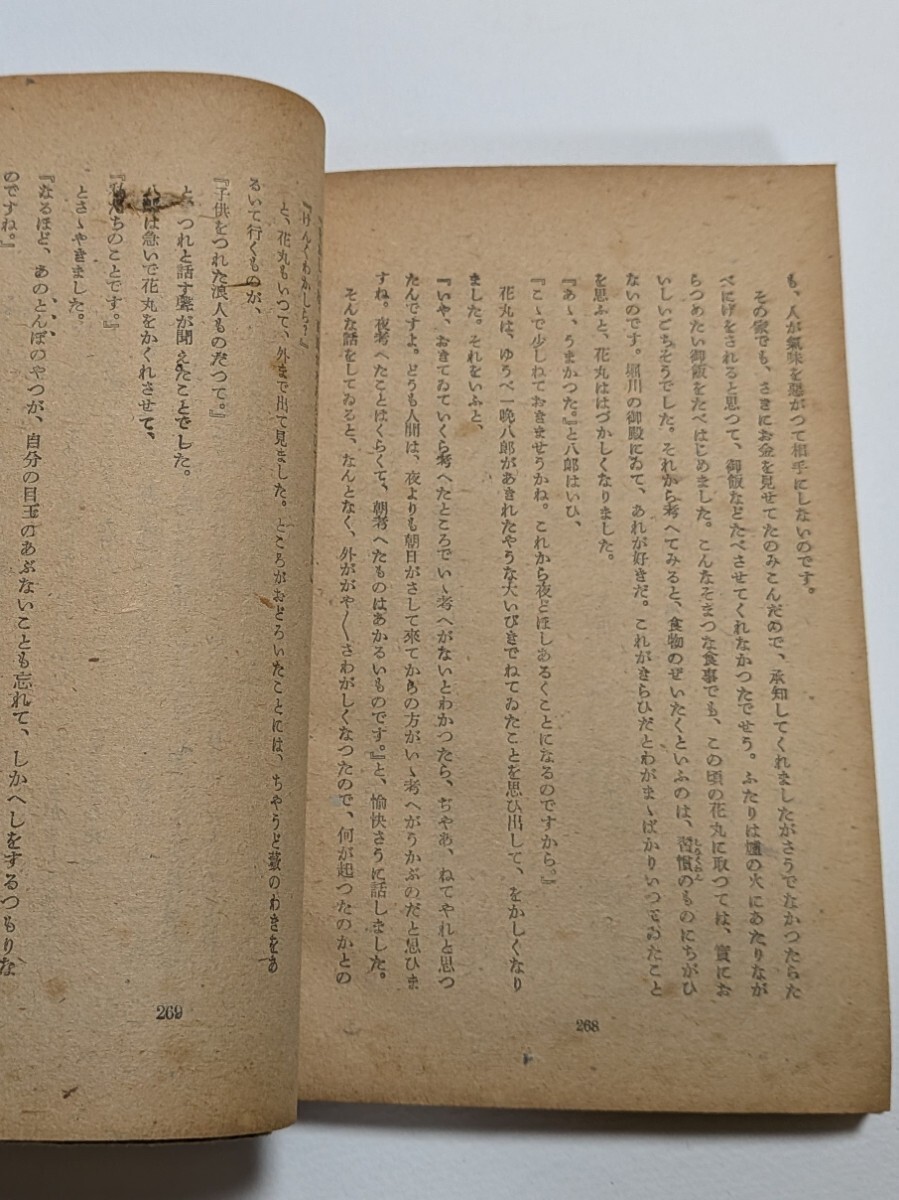 も、人が氣味を惡がつて相手にしないのです。
その家でも、さきにお金を見せてたのみこんだので、承知してくれましたがさうでなかつたらた
べにげをされると思つて、御飯などたべさせてくれなかつたでせう。ふたりは爐の火にあたりなが
らつめたい御飯をたべはじめました。こんなそまつな食事でも、この頃の花丸に取つては、實にお
いしいごちそうでした。それから考へてみると、食物のぜいたくといふのは、習慣のものにちがひ
ないのです。堀川の御殿にゐて、あれが好きだ。これがきらひだとわがまゝばかりいつてゐたこと
を思ふと、花丸ははづかしくなりました。
『あゝ、うまかつた。』と八郎はいひ、
『こゝで少しねておきませうかね。これから夜どほしあるくことになるのですから。』
花丸は、ゆうべ一晩八郎があきれたやうな大いびきでねてゐたことを思ひ出して、をかしくなり
ました。それをいふと、
『いや、おきてゐていくら考へたところでいゝ考へがないとわかつたら、ぢやあ、ねてやれと思つ
たんですよ。どうも人間は、夜よりも朝日がさして來てからの方がいゝ考へがうかぶのだと思ひま
すね。夜考へたことはくらくて、朝考へたものはあかるいものです。』と、愉快さうに話しました。
そんな話をしてゐると、なんとなく、外ががや〳〵さわがしくなつたので、何が起つたのかとの
268
『けんくわかしら？』
と、花丸もいつて、外まで出て見ました。ところがおどろいたことには、ちやうど藪のわきをあ
るいて行くものが、
『子供をつれた浪人ものだつて。』
と、つれと話す聲が聞えたことでした。
八郎は急いで花丸をかくれさせて、
『私たちのことです。』
とさゝやきました。
『なるほど、あのとんぼのやつが、自分の目玉のあぶないことも忘れて、しかへしをするつもりな
のですね。』
269